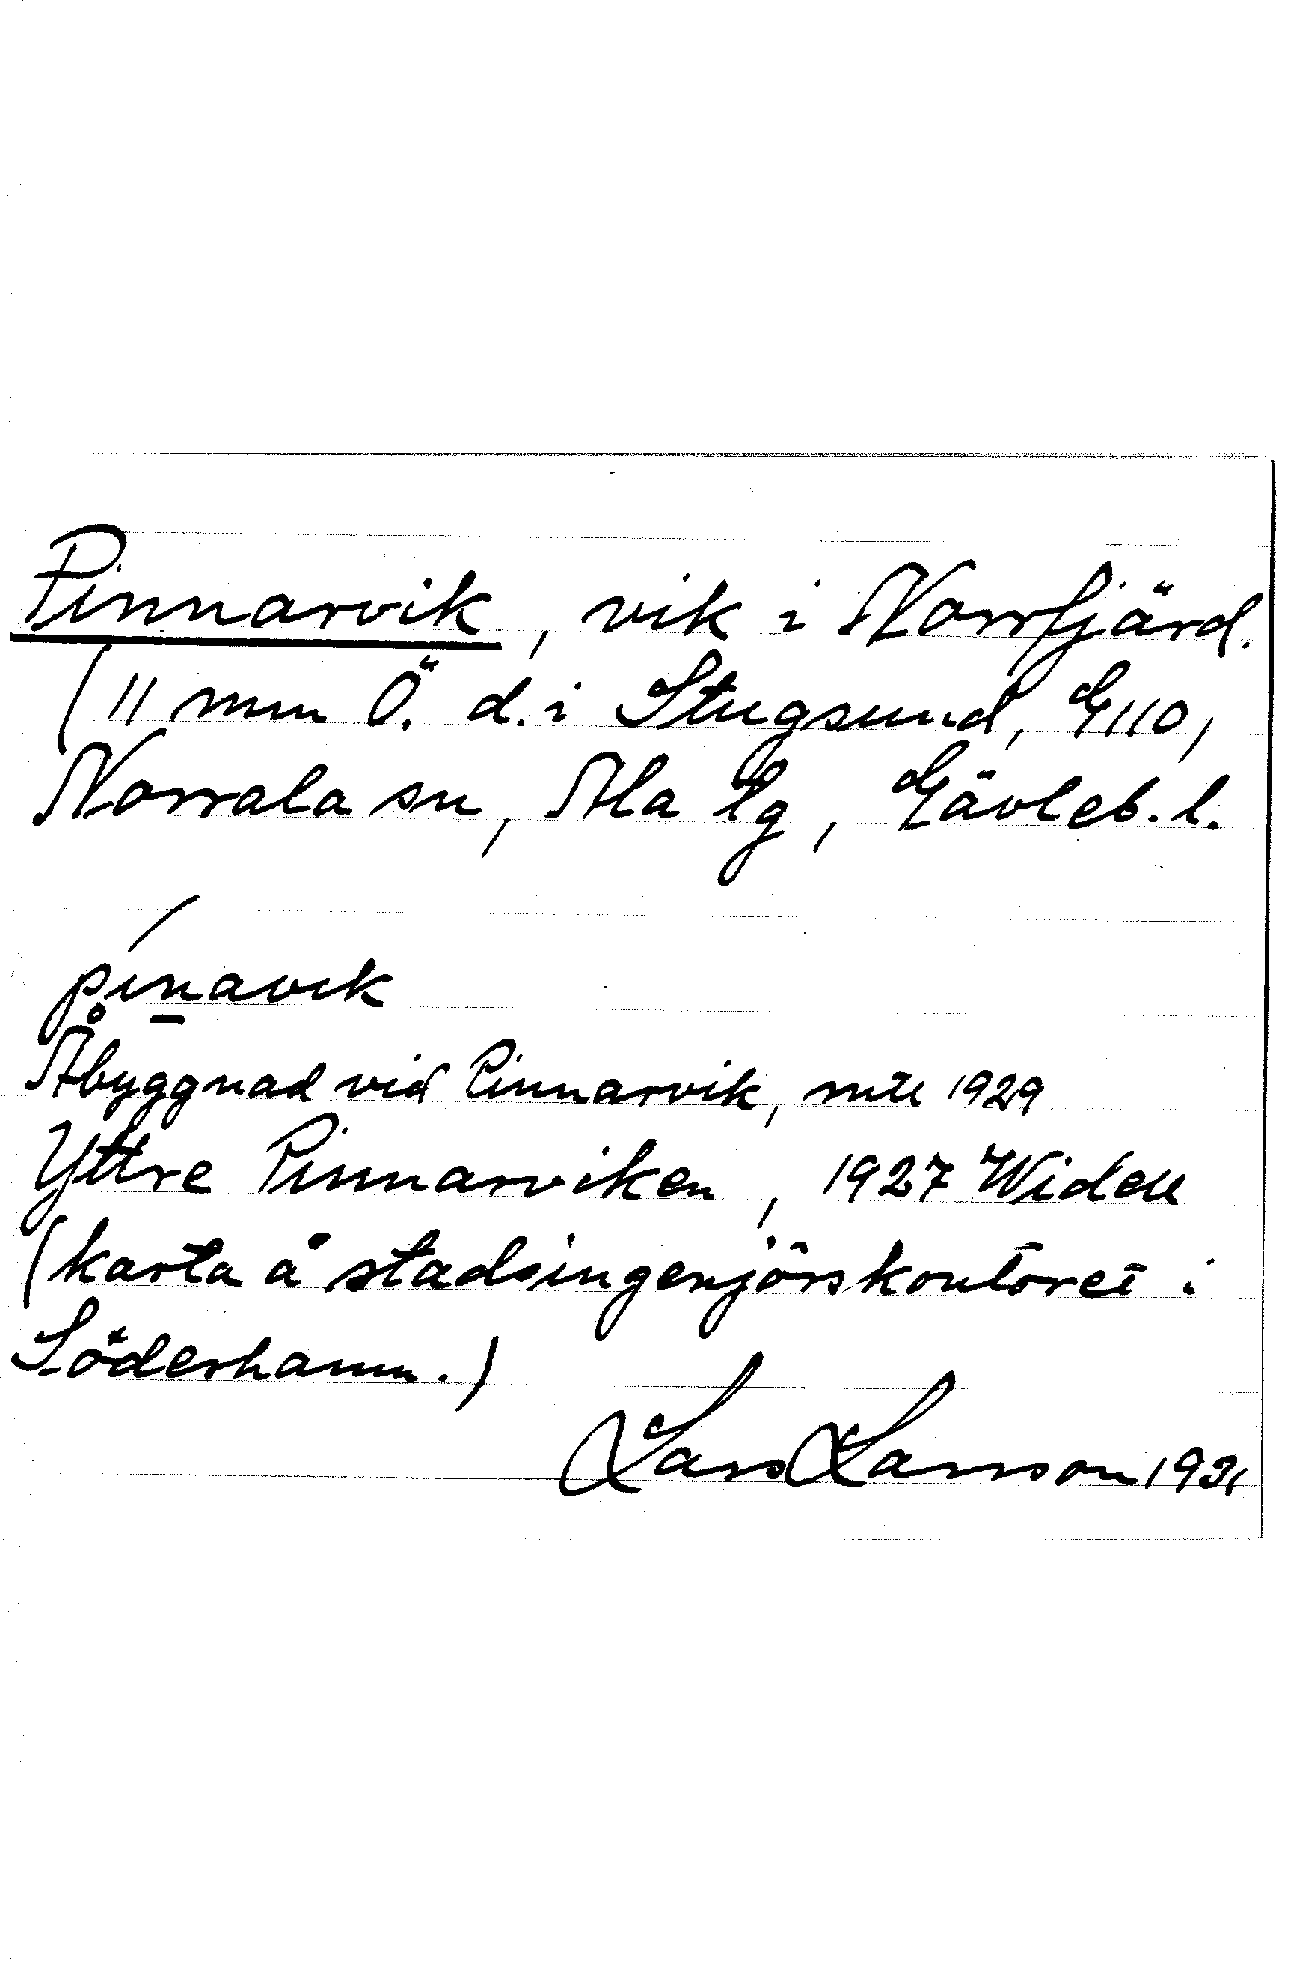 Pinnarvik, vik i Norrfjärd.
(11 mm Ö. d. i Stugsund, G110,
Norrala sn, Ala tg, Gävleb. l.
pinavik
Åbyggnad vid Pinnarvik, mtl 1929
Yttre Pinnarviken, 1927 Widell
(karta å stadsingenjörskontoret i
Söderhamn.)
Lars Larsson 1931